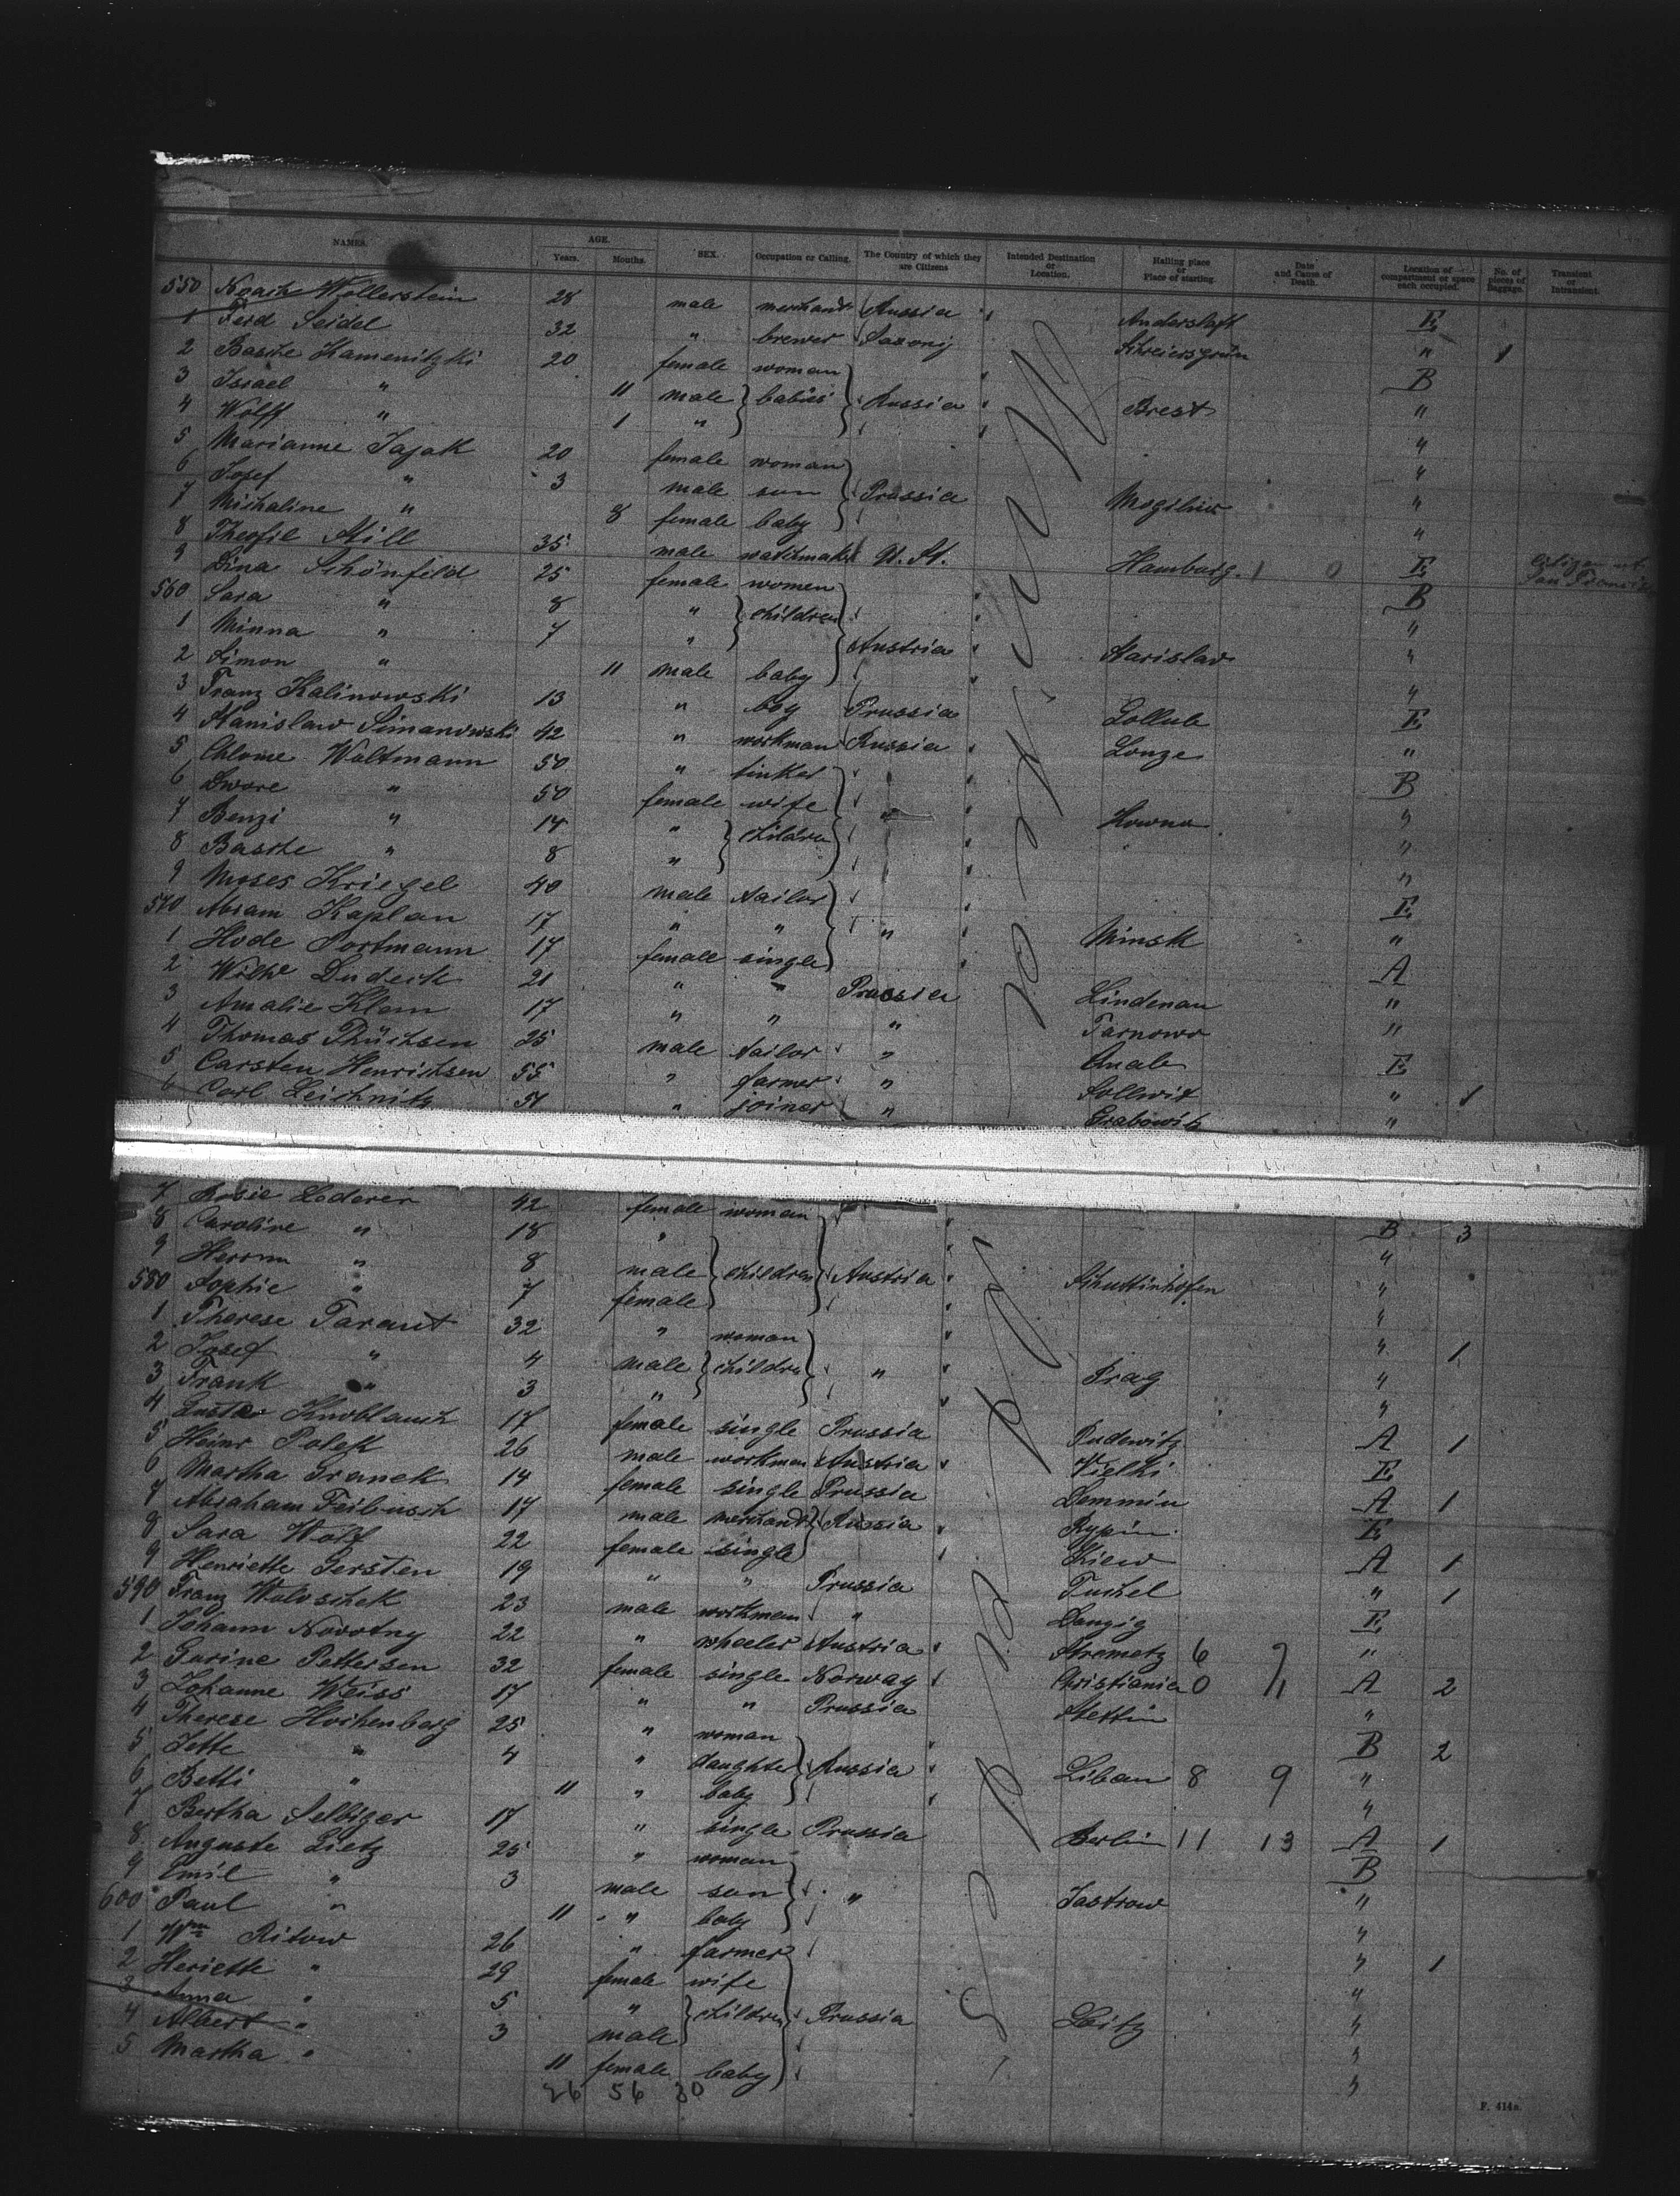 NAMES. AGE. Years. Months. SEX. Occupation or Calling. The Country of which they are Citizens Intended Destination or Location. Hailing place or Place of starting. Date and Cause of Death. Location of compartment or space each occupied. No. of pieces of Baggage. Transient or Intransient.
550 Noach Wollerstein 28 male merchant Russia E
1 Ferd Seidel 32 " brewer Saxony Schreiersgrün " 1
2 Basche Kamenitzki 20 female woman B
3 Israel " 11 male babies Russia Brest "
4 Wolff " 1 " "
5 Marianne Sajak 20 female woman "
6 Josef " 3 male son Prussia Mogilno "
7 Michaline " 8 female baby "
8 Theofil Mill 35 male watchmaker U. St. Hamburg. 1 0 E
9 Lina Schönfeld 25 female women B
560 Sara " 8 " children "
1 Minna " 7 " Austria "
2 Simon " 11 male baby "
3 Franz Kalinowski 13 " boy Prussia Gollub E
4 Stanislaw Simanowski 42 " workman Russia "
5 Chlome Waltmann 50 " tinker B
6 Dwore " 50 female wife "
7 Benzi " 14 " children " Kowno "
8 Basche " 8 " "
9 Moses Kriegel 40 male tailor E
570 Abram Kaplan 17 " " " Minsk "
1 Hode Portmann 17 female single A
2 Wilhe Dudeck 21 " " Prussia Lindenau "
3 Amalie Klam 17 " " " Tarnowo "
4 Thomas Thüchsen 25 male tailor " E
5 Carsten Henrichsen 55 " farmer " Sollwit " 1
6 Carl Leichnitz 51 " joiner " Grabowitz "
7 Rosie Lederer 42 female woman B 3
8 Caroline " 18 " "
9 Herrm " 8 male children Austria Schuttinhofen "
580 Sophie " 7 female "
1 Therese Taraut 32 " woman " 1
2 Josef " 4 male children " Prag "
3 Frank " 3 " "
4 Knoblauch 17 female single Prussia Pudewitz A 1
5 Heinr Polek 26 male workman Austria Vielki E
6 Martha Franck 14 female single Prussia Demmin A 1
7 Abraham Feibusch 17 male merchant Russia Rypin E
8 Sara Wolf 22 female single Kiew A 1
9 Henriette Gersten 19 " " Prussia Tuchel " 1
590 Franz Woloschek 23 male workman " Danzig E
1 Johann Novotny 22 " wheeler Austria 6 7 "
2 Gurine Pettersen 32 female single Norway Christiania 0 11 A 2
3 Johanne Weiss 17 " " Prussia Stettin "
4 Therese Hochenberg 25 " woman B 2
5 Jette " 4 " daughter Russia Libau 8 9 "
6 Betti " 11 " baby "
7 Bertha Selbiger 17 " single Prussia Berlin 11 13 A 1
8 Auguste Lietz 25 " woman B
9 Emil " 3 male son " Jastrow "
600 Paul " 11 " baby "
1 Wm Ritow 26 " farmer " 1
2 Heriette " 29 female wife "
3 Anna " 5 " children Prussia "
4 Albert " 3 male "
5 Martha " 11 female baby "
26 56 30
F. 414a.